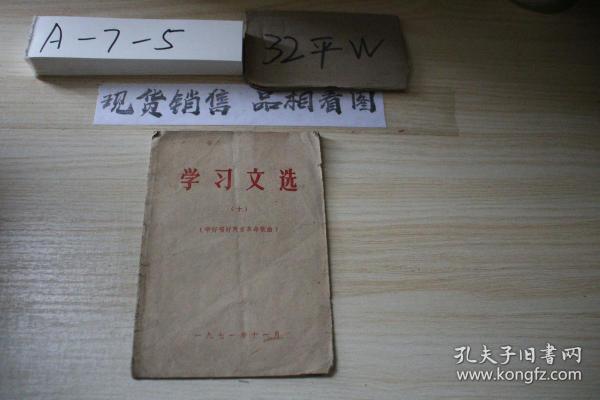 A-7-5
32平W
现货销售 品相看图
学习文选
（十）
（学好唱好两首革命歌曲）
一九七一年十一月
孔夫子旧書网
www.kongfz.com